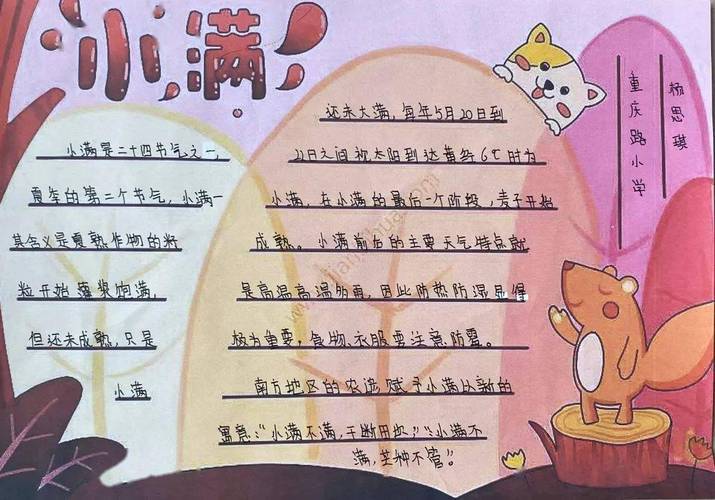 小满
小满是二十四节气之一，
夏季的第二个节气，小满一
其含义是夏熟作物的籽
粒开始灌浆饱满，
但还未成熟，只是
小满
还未大满，每年5月20日到
22日之间视太阳到达黄经6℃时为
小满，在小满的最后一个阶段，麦子开始
成熟。小满前后的主要天气特点就
是高温高温多雨，因此防热防湿显得
极为重要，食物、衣服要注意防霉。
南方地区的农谚赋予小满以新的
寓意："小满不满，干断田坎""小满不
满，芒种不管"
重庆路小学
杨思琪